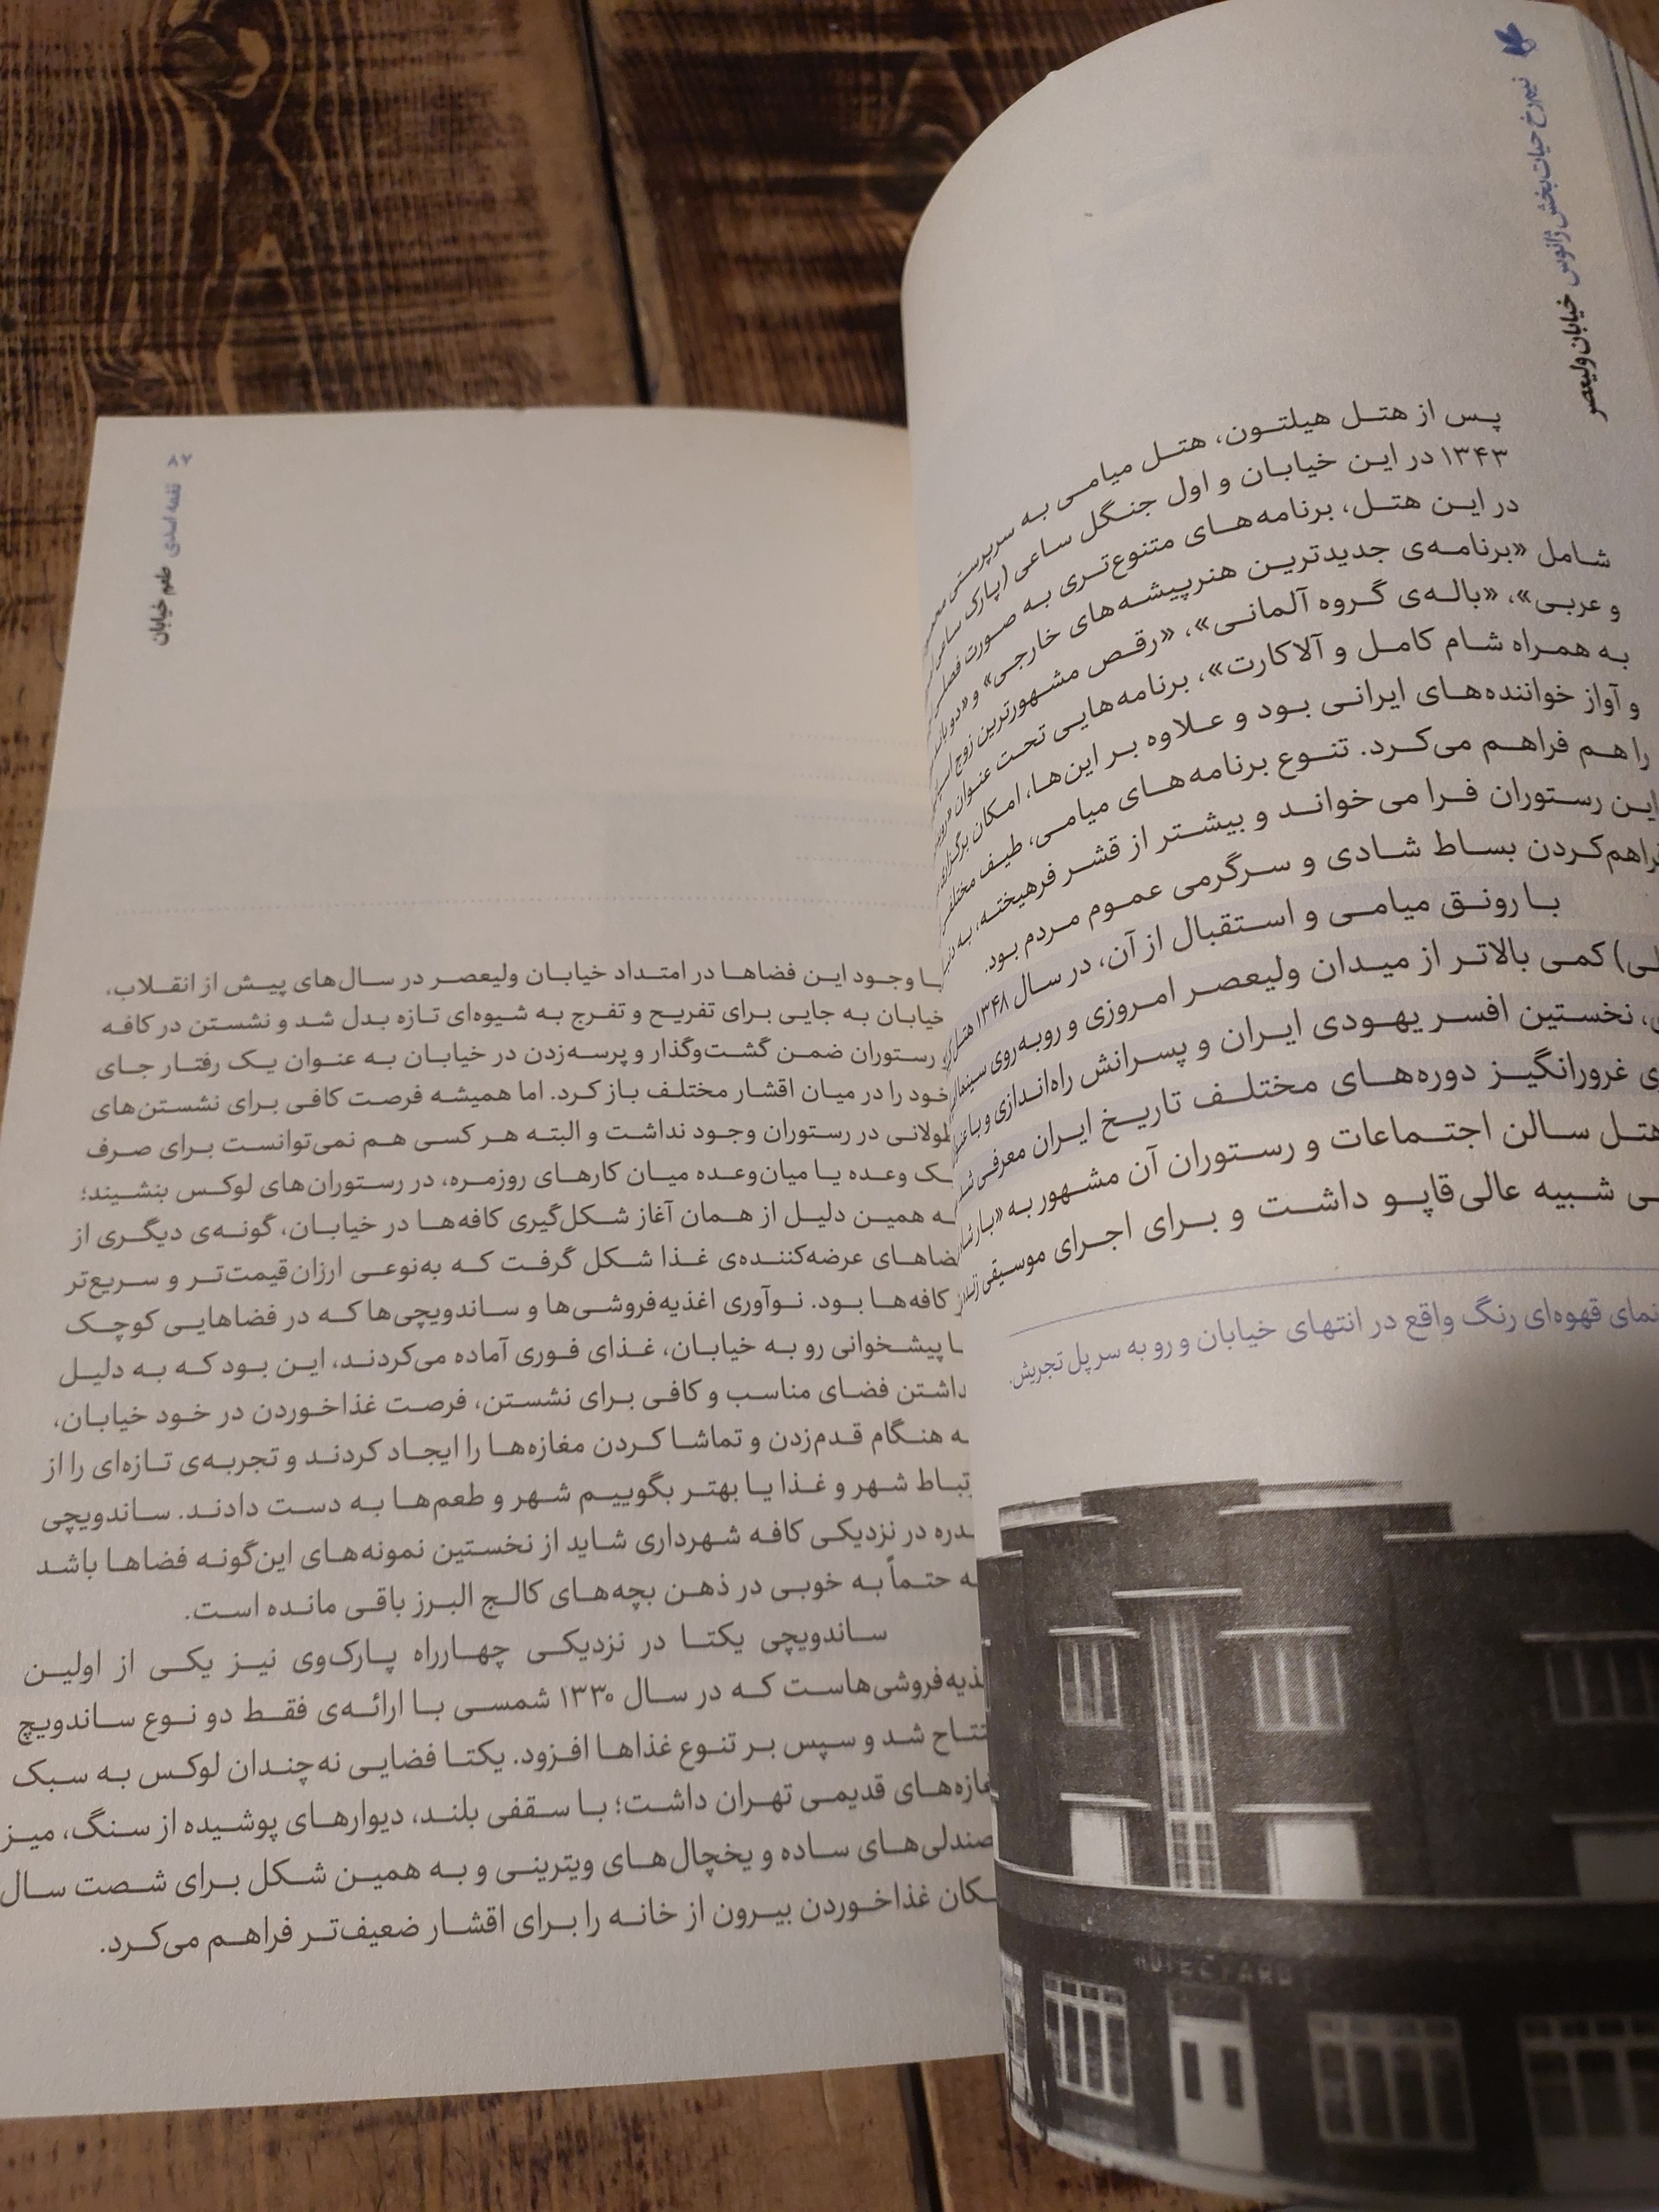 نیم‌رخ حیات‌بخش ژانوس خیابان ولیعصر
پس از هتل هیلتون، هتل میامی به سرپرستی
۱۳۴۳ در این خیابان و اول جنگل ساعی (پارک
در این هتل، برنامه‌های متنوع‌تری به صورت
شامل «برنامه‌ی جدیدترین هنرپیشه‌های خارجی» و
و عربی»، «باله‌ی گروه آلمانی»، «رقص مشهورترین زوج
به همراه شام کامل و آلاکارت»، برنامه‌هایی تحت عنوان
و آواز خواننده‌های ایرانی بود و علاوه بر این‌ها، امکان برگزاری
را هم فراهم می‌کرد. تنوع برنامه‌های میامی، طیف
این رستوران فرا می‌خواند و بیشتر از قشر فرهیخته، به
فراهم‌کردن بساط شادی و سرگرمی عموم مردم بود.
با رونق میامی و استقبال از آن، در سال ۱۳۴۸
کمی بالاتر از میدان ولیعصر امروزی و روبه‌روی
نخستین افسر یهودی ایران و پسرانش راه‌اندازی و با
غرورانگیز دوره‌های مختلف تاریخ ایران معرفی
هتل سالن اجتماعات و رستوران آن مشهور به
شبیه عالی‌قاپو داشت و برای اجرای موسیقی
نمای قهوه‌ای رنگ واقع در انتهای خیابان و رو به سر پل تجریش.
۸۷ نغمه اسدی طعم خیابان
با وجود این فضاها در امتداد خیابان ولیعصر در سال‌های پیش از انقلاب،
خیابان به جایی برای تفریح و تفرج به شیوه‌ای تازه بدل شد و نشستن در کافه
رستوران ضمن گشت‌وگذار و پرسه‌زدن در خیابان به عنوان یک رفتار جای
خود را در میان اقشار مختلف باز کرد. اما همیشه فرصت کافی برای نشستن‌های
طولانی در رستوران وجود نداشت و البته هر کسی هم نمی‌توانست برای صرف
یک وعده یا میان‌وعده میان کارهای روزمره، در رستوران‌های لوکس بنشیند؛
به همین دلیل از همان آغاز شکل‌گیری کافه‌ها در خیابان، گونه‌ی دیگری از
فضاهای عرضه‌کننده‌ی غذا شکل گرفت که به‌نوعی ارزان‌قیمت‌تر و سریع‌تر
از کافه‌ها بود. نوآوری اغذیه‌فروشی‌ها و ساندویچی‌ها که در فضاهایی کوچک
با پیشخوانی رو به خیابان، غذای فوری آماده می‌کردند، این بود که به دلیل
نداشتن فضای مناسب و کافی برای نشستن، فرصت غذاخوردن در خود خیابان،
به هنگام قدم‌زدن و تماشا کردن مغازه‌ها را ایجاد کردند و تجربه‌ی تازه‌ای را از
ارتباط شهر و غذا یا بهتر بگوییم شهر و طعم‌ها به دست دادند. ساندویچی
در نزدیکی کافه شهرداری شاید از نخستین نمونه‌های این‌گونه فضاها باشد
که حتماً به خوبی در ذهن بچه‌های کالج البرز باقی مانده است.
ساندویچی یکتا در نزدیکی چهارراه پارک‌وی نیز یکی از اولین
اغذیه‌فروشی‌هاست که در سال ۱۳۳۰ شمسی با ارائه‌ی فقط دو نوع ساندویچ
افتتاح شد و سپس بر تنوع غذاها افزود. یکتا فضایی نه‌چندان لوکس به سبک
مغازه‌های قدیمی تهران داشت؛ با سقفی بلند، دیوارهای پوشیده از سنگ، میز
صندلی‌های ساده و یخچال‌های ویترینی و به همین شکل برای شصت سال
امکان غذاخوردن بیرون از خانه را برای اقشار ضعیف‌تر فراهم می‌کرد.